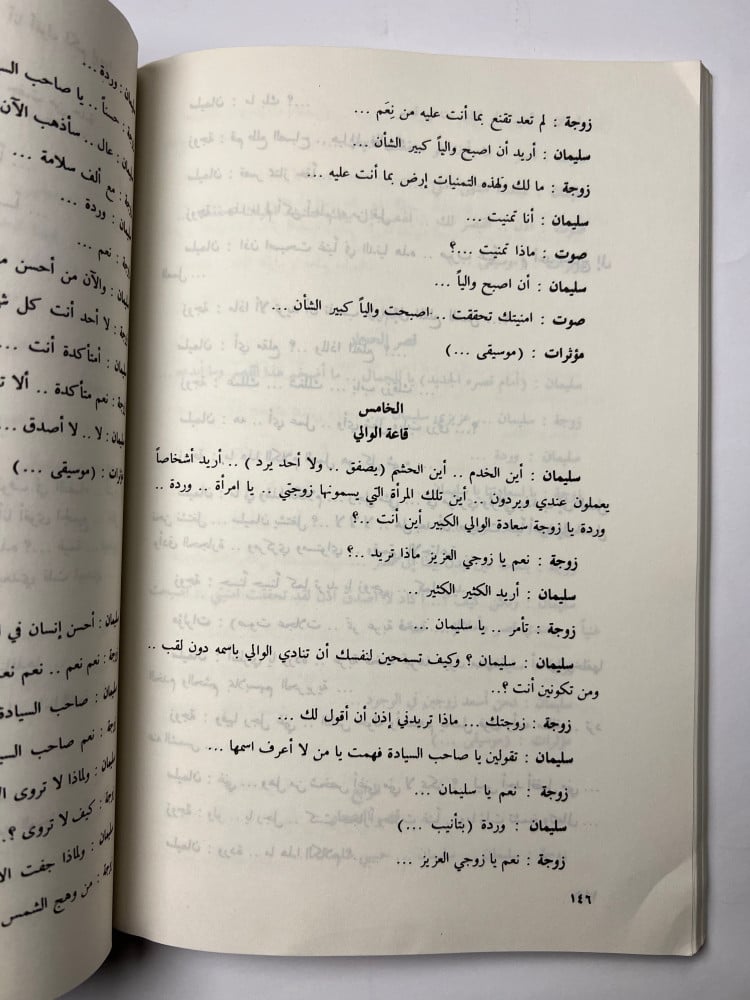 زوجة : لم تعد تقنع بما أنت عليه من نِعَم ...
سليمان : أريد أن اصبح والياً كبير الشأن ...
زوجة : ما لك ولهذه التمنيات إرض بما أنت عليه ...
سليمان : أنا تمنيت ...
صوت : ماذا تمنيت ...؟
سليمان : أن اصبح والياً ...
صوت : امنيتك تحققت .. اصبحت والياً كبير الشأن ...
مؤثرات : (موسيقى ...)
الخامس
قاعة الوالي
سليمان : أين الخدم .. أين الحشم (يصفق .. ولا أحد يرد) .. أريد أشخاصاً
يعملون عندي ويردون .. أين تلك المرأة التي يسمونها زوجتي .. يا امرأة .. وردة ..
وردة يا زوجة سعادة الوالي الكبير أين أنت ..؟
زوجة : نعم يا زوجي العزيز ماذا تريد ..؟
سليمان : أريد الكثير الكثير ..
زوجة : تأمر .. يا سليمان ...
سليمان : سليمان ؟ وكيف تسمحين لنفسك أن تنادي الوالي باسمه دون لقب ..
ومن تكونين أنت ؟..
زوجة : زوجتك ... ماذا تريدني إذن أن أقول لك ...
سليمان : تقولين يا صاحب السيادة فهمت يا من لا أعرف اسمها ...
زوجة : نعم يا سليمان ...
سليمان : وردة (بتأنيب ...)
زوجة : نعم يا زوجي العزيز ...
١٤٦
سليمان : وردة ...
زوجة : حسناً .. يا صاحب
سليمان : عال .. سأذهب الآن
زوجة : مع ألف سلامة ...
سليمان : وردة ...
زوجة : نعم ...
سليمان : والآن من أحسن
زوجة : لا أحد أنت كل
سليمان : أمتأكدة أنت ...
زوجة : نعم متأكدة .. ألا
سليمان : لا .. لا أصدق ...
مؤثرات : (موسيقى ...)
سليمان : أحسن إنسان في
زوجة : نعم نعم .. نعم
سليمان : صاحب السيادة
زوجة : نعم صاحب
سليمان : ولماذا لا تروى
زوجة : كيف لا تروى ؟.
سليمان : ولماذا جفت
زوجة : من وهج الشمس